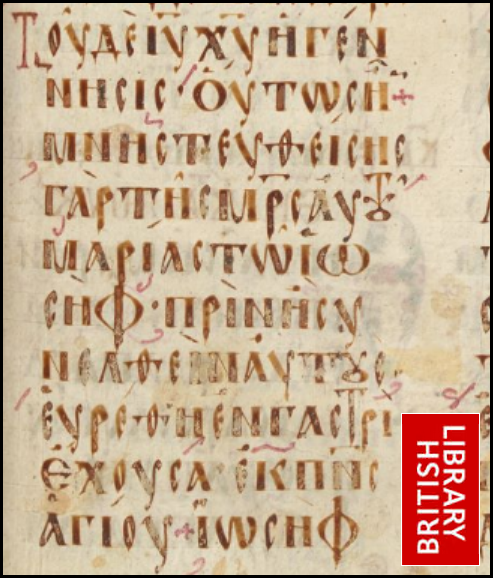 ΤΟΥΔΕΙ̅Υ̅Χ̅Υ̅ΗΓΕΝ
ΝΗϹΙϹ·ΟΥΤΩϹΗ̅+
ΜΝΗϹΤΕΥΘΕΙϹΗϹ
ΓΑΡΤΗϹΜ̅Ρ̅Ϲ̅ΑΥΤȢ
ΜΑΡΙΑϹΤΩΪΩ
ϹΗΦ·ΠΡΙΝΗϹΥ
ΝΕΛΘΕΙΝΑΥΤȢϹ·
ΕΥΡΕΘΗΕΝΓΑϹΤΡΙ
ΕΧΟΥϹΑΕΚΠ̅Ν̅Ϲ̅
ΑΓΙΟΥ+ΪΩϹΗΦ
BRITISH
LIBRARY